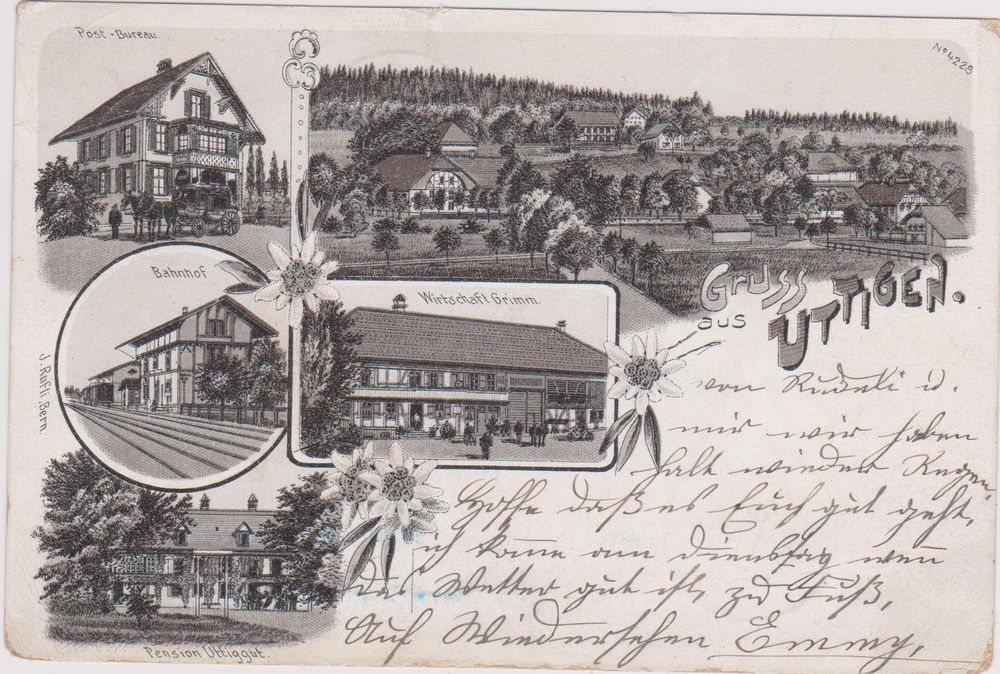 Post-Bureau.
No 4228
Bahnhof
Wirtschaft Grimm.
Gruss
aus UTTIGEN.
J. Rüfli, Bern.
Pension Uttiggut.
von Rudeli u.
mir wir haben
halt wieder Regen,
Hoffe daß es Euch gut geht,
ich kome am Dienstag wen
das Wetter gut ist, zu Fuß,
Auf Wiedersehen Emmy,